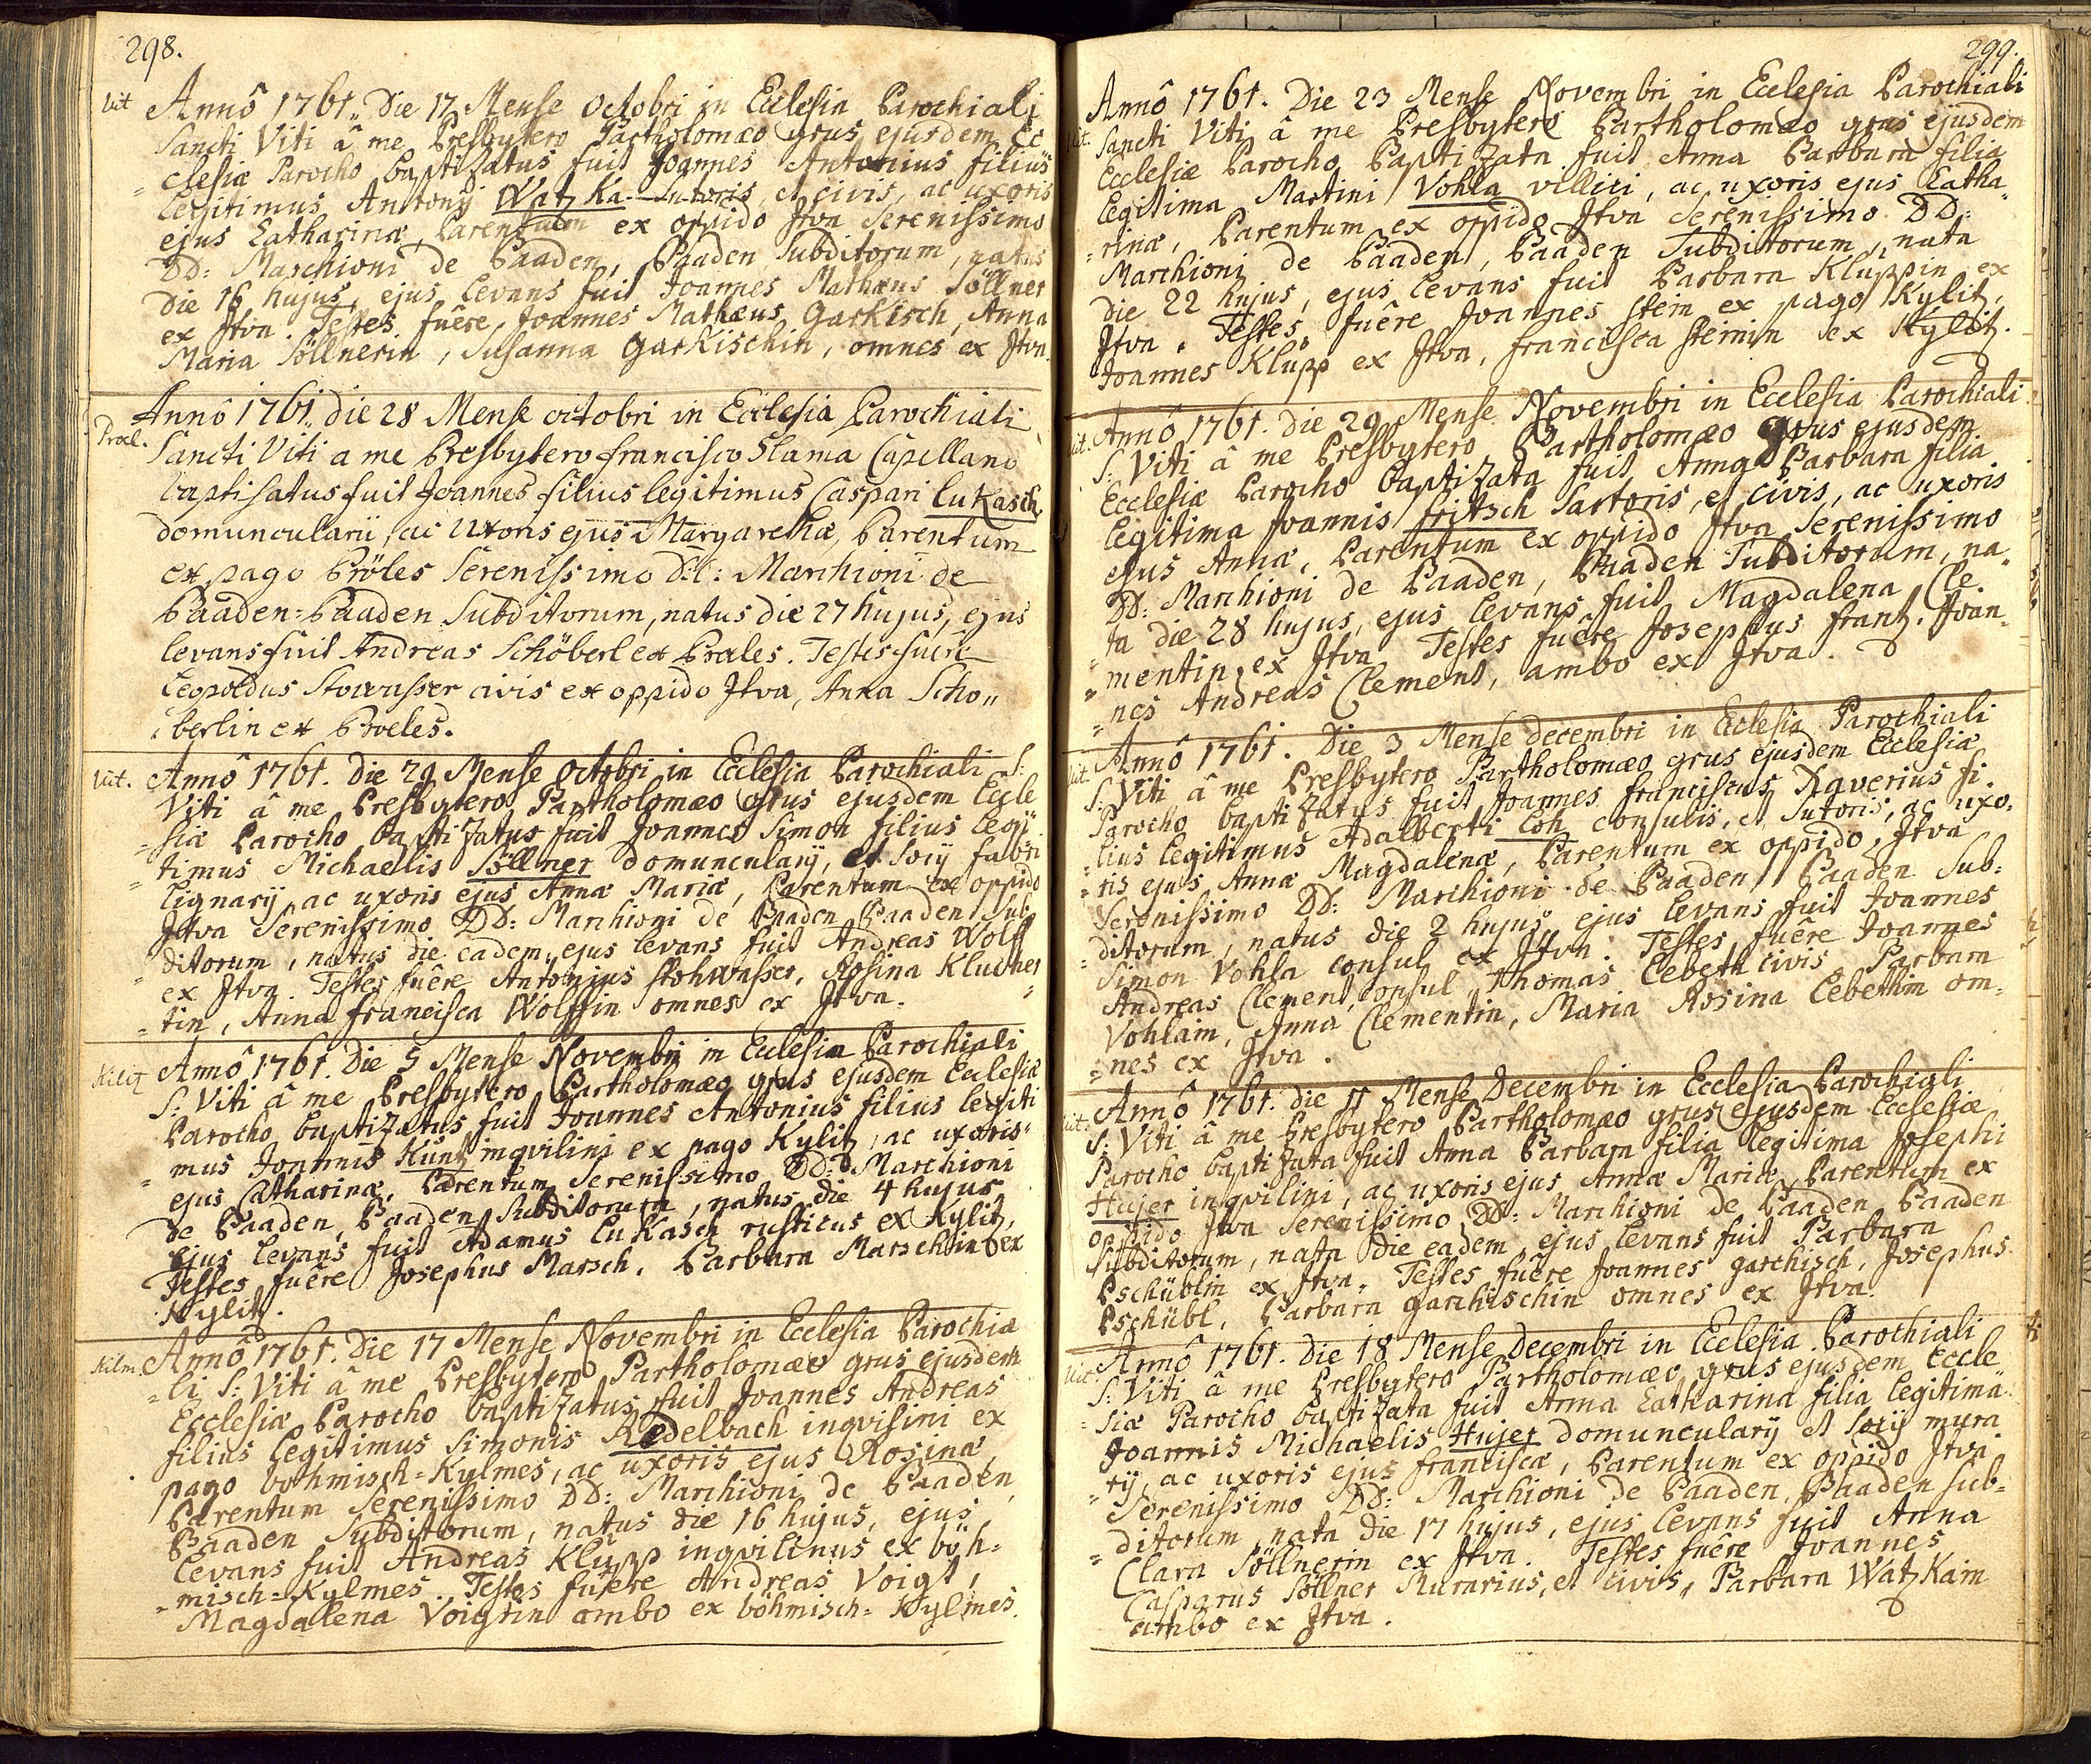 298.
Vit Annô 1761. Die 17 Mense Octobri in Ecclesia Parochiali
Sancti Viti â me Presbytero Partholomæo Grus ejusdem Ec
= clesiæ Parocho baptizatus fuit Joannes Antonius filius
legitimus Antonÿ Watzka Sutoris, et civis, ac uxoris
ejus Catharinæ, Parentum ex oppido Jtva Serenissimo
DD: Marchioni de Baaden, Baaden Subditorum, natus
die 16 hujus, ejus levans fuit Joannes Mathæus Söllner
ex Jtva. Testes fuêre Joannes Mathæus Garkisch, Anna
Maria Söllnerin, Susanna Garkischin, omnes ex Jtva.
Prœl. Annô 1761. die 28 Mense octobri in Ecclesia Parochiali
Sancti Viti a me Presbytero Francisco Slama Capellano
baptisatus fuit Joannes filius legitimus Caspari Lukasch
domuncularii, ac Uxoris ejus Margarethæ, Parentum
ex pago Pröles Serenissimo DD: Marchioni de
Baaden=Baaden Subditorum, natus die 27 hujus, ejus
levans fuit Andreas Schöberl ex Prœles. Testes fuêre
Leopoldus Stowasser civis ex oppido Jtva, Anna Scho„
berlin ex Proeles.
Vit. Annô 1761. Die 29 Mense Octobri in Ecclesia Parochiali S:
Viti â me Presbytero Partholomæo Grus ejusdem Eccle
= siæ Parocho baptizatus fuit Joannes Simon filius legi
= timus Michaelis Söllner domuncularÿ, et Sociÿ fabri
lignarÿ, ac uxoris ejus Annæ Mariæ, Parentum ex oppido
Jtva Serenissimo DD: Marchioni de Baaden Baaden Sub
= ditorum, natus die eadem, ejus levans fuit Andreas Wolff
ex Jtva. Testes fuêre Antonius Stohwasser, Rosina Kludner
= tin, Anna Francisca Wolffin omnes ex Jtva.
Kilitz Annô 1761. Die 5 Mense Novembri in Ecclesia Parochiali
S: Viti â me Presbytero Partholomæo grus ejusdem Ecclesiæ
Parocho baptizatus fuit Joannes Antonius filius legiti
= mus Joannis Kuntz inqvilini ex pago Kylitz, ac uxoris
ejus Catharinæ, Parentum Serenissimo DD: Marchioni
de Baaden, Baaden Subditorum, natus die 4 hujus
ejus levans fuit Adamus Lukasch rusticus ex Kylitz,
Testes fuêre Josephus Marsch, Barbara Marschtin ex
Kylitz.
Kilm. Annô 1761. Die 17 Mense Novembri in Ecclesia Parochia
= li S: Viti â me Presbytero Partholomæo grus ejusdem
Ecclesiæ Parocho baptizatus fuit Joannes Andreas
filius legitimus Simonis Redelbach inqvilini ex
pago böhmisch=Kylmes, ac uxoris ejus Rosinæ,
Parentum Serenissimo DD: Marchioni de Baaden,
Baaden Subditorum, natus die 16 hujus, ejus
levans fuit Andreas Klupp inqvilinus ex böh=
= misch=Kylmes. Testes fuêre Andreas Voigt,
Magdalena Voigtin ambo ex böhmisch=Kylmes.
299.
Vit. Annô 1761. Die 23 Mense Novembri in Ecclesia Parochiali
Sancti Viti â me Presbytero Partholomæo grus ejusdem
Ecclesiæ Parocho Baptizata fuit Anna Barbara filia
legitima Martini Vohla villici, ac uxoris ejus Catha
= rinæ, Parentum ex oppido Jtva Serenissimo DD:
Marchioni de Baaden, Baaden Subditorum, nata
die 22 hujus, ejus levans fuit Barbara Kluppin ex
Jtva. Testes fuêre Joannes Stein ex pago Kylitz,
Joannes Klupp ex Jtva, Francisca Steinin ex Kylitz.
Vit. Annô 1761. Die 29 Mense Novembri in Ecclesia Parochiali
S: Viti â me Presbytero Partholomæo Grus ejusdem
Ecclesiæ Parocho baptizata fuit Anna Barbara filia
legitima Joannis Fritsch Sartoris, et civis, ac uxoris
ejus Annæ, Parentum ex oppido Jtva Serenissimo
DD: Marchioni de Baaden, Baaden Subditorum, na=
= ta die 28 hujus, ejus levans fuit Magdalena Cle=
= mentin ex Jtva. Testes fuêre Josephus Frantz. Joan=
= nes Andreas Clement, ambo ex Jtva.
Vit. Annô 1761. Die 3 Mense decembri in Ecclesia Parochiali
S: Viti â me Presbytero Partholomæo grus ejusdem Ecclesiæ
Parocho baptizatus fuit Joannes Franciscus Xaverius fi=
= lius legitimus Adalberti Loh consulis, et Sutoris, ac uxo=
= ris ejus Annæ Magdalenæ, Parentum ex oppido Jtva
Serenissimo DD: Marchioni de Baaden, Baaden Sub=
= ditorum, natus die 2 hujus, ejus levans fuit Joannes
Simon Vohla consul ex Jtva. Testes fuêre Joannes
Andreas Clement consul, Thomas Lebeth civis, Barbara
Vohlain, Anna Clementin, Maria Rosina Lebethin om=
= nes ex Jtva.
Vit. Annô 1761. die 11 Mense Decembri in Ecclesia Parochiali
S: Viti â me Presbytero Partholomæo grus ejusdem Ecclesiæ
Parocho baptizata fuit Anna Barbara filia legitima Josephi
Hujer inqvilini, ac uxoris ejus Annæ Mariæ, Parentum ex
oppido Jtva Serenissimo DD: Marchioni de Baaden Baaden
Subditorum, nata die eadem, ejus levans fuit Barbara
Pschüblin ex Jtva. Testes fuêre Joannes garchisch, Josephus
Pschübl, Barbara garchischin omnes ex Jtva.
Vit. Annô 1761. die 18 Mense Decembri in Ecclesia Parochiali
S: Viti â me Presbytero Partholomæo grus ejusdem Eccle
= siæ Parocho baptizata fuit Anna Catharina filia legitima
Joannis Michaelis Hujer domuncularÿ et Sociÿ mura
= rÿ, ac uxoris ejus Franciscæ, Parentum ex oppido Jtva
Serenissimo DD: Marchioni de Baaden, Baaden Sub=
= ditorum, nata die 17 hujus, ejus levans fuit Anna
Clara Söllnerin ex Jtva. Testes fuêre Joannes
Casparus Söllner Murarius, et civis, Barbara Watzkain
ambo ex Jtva.